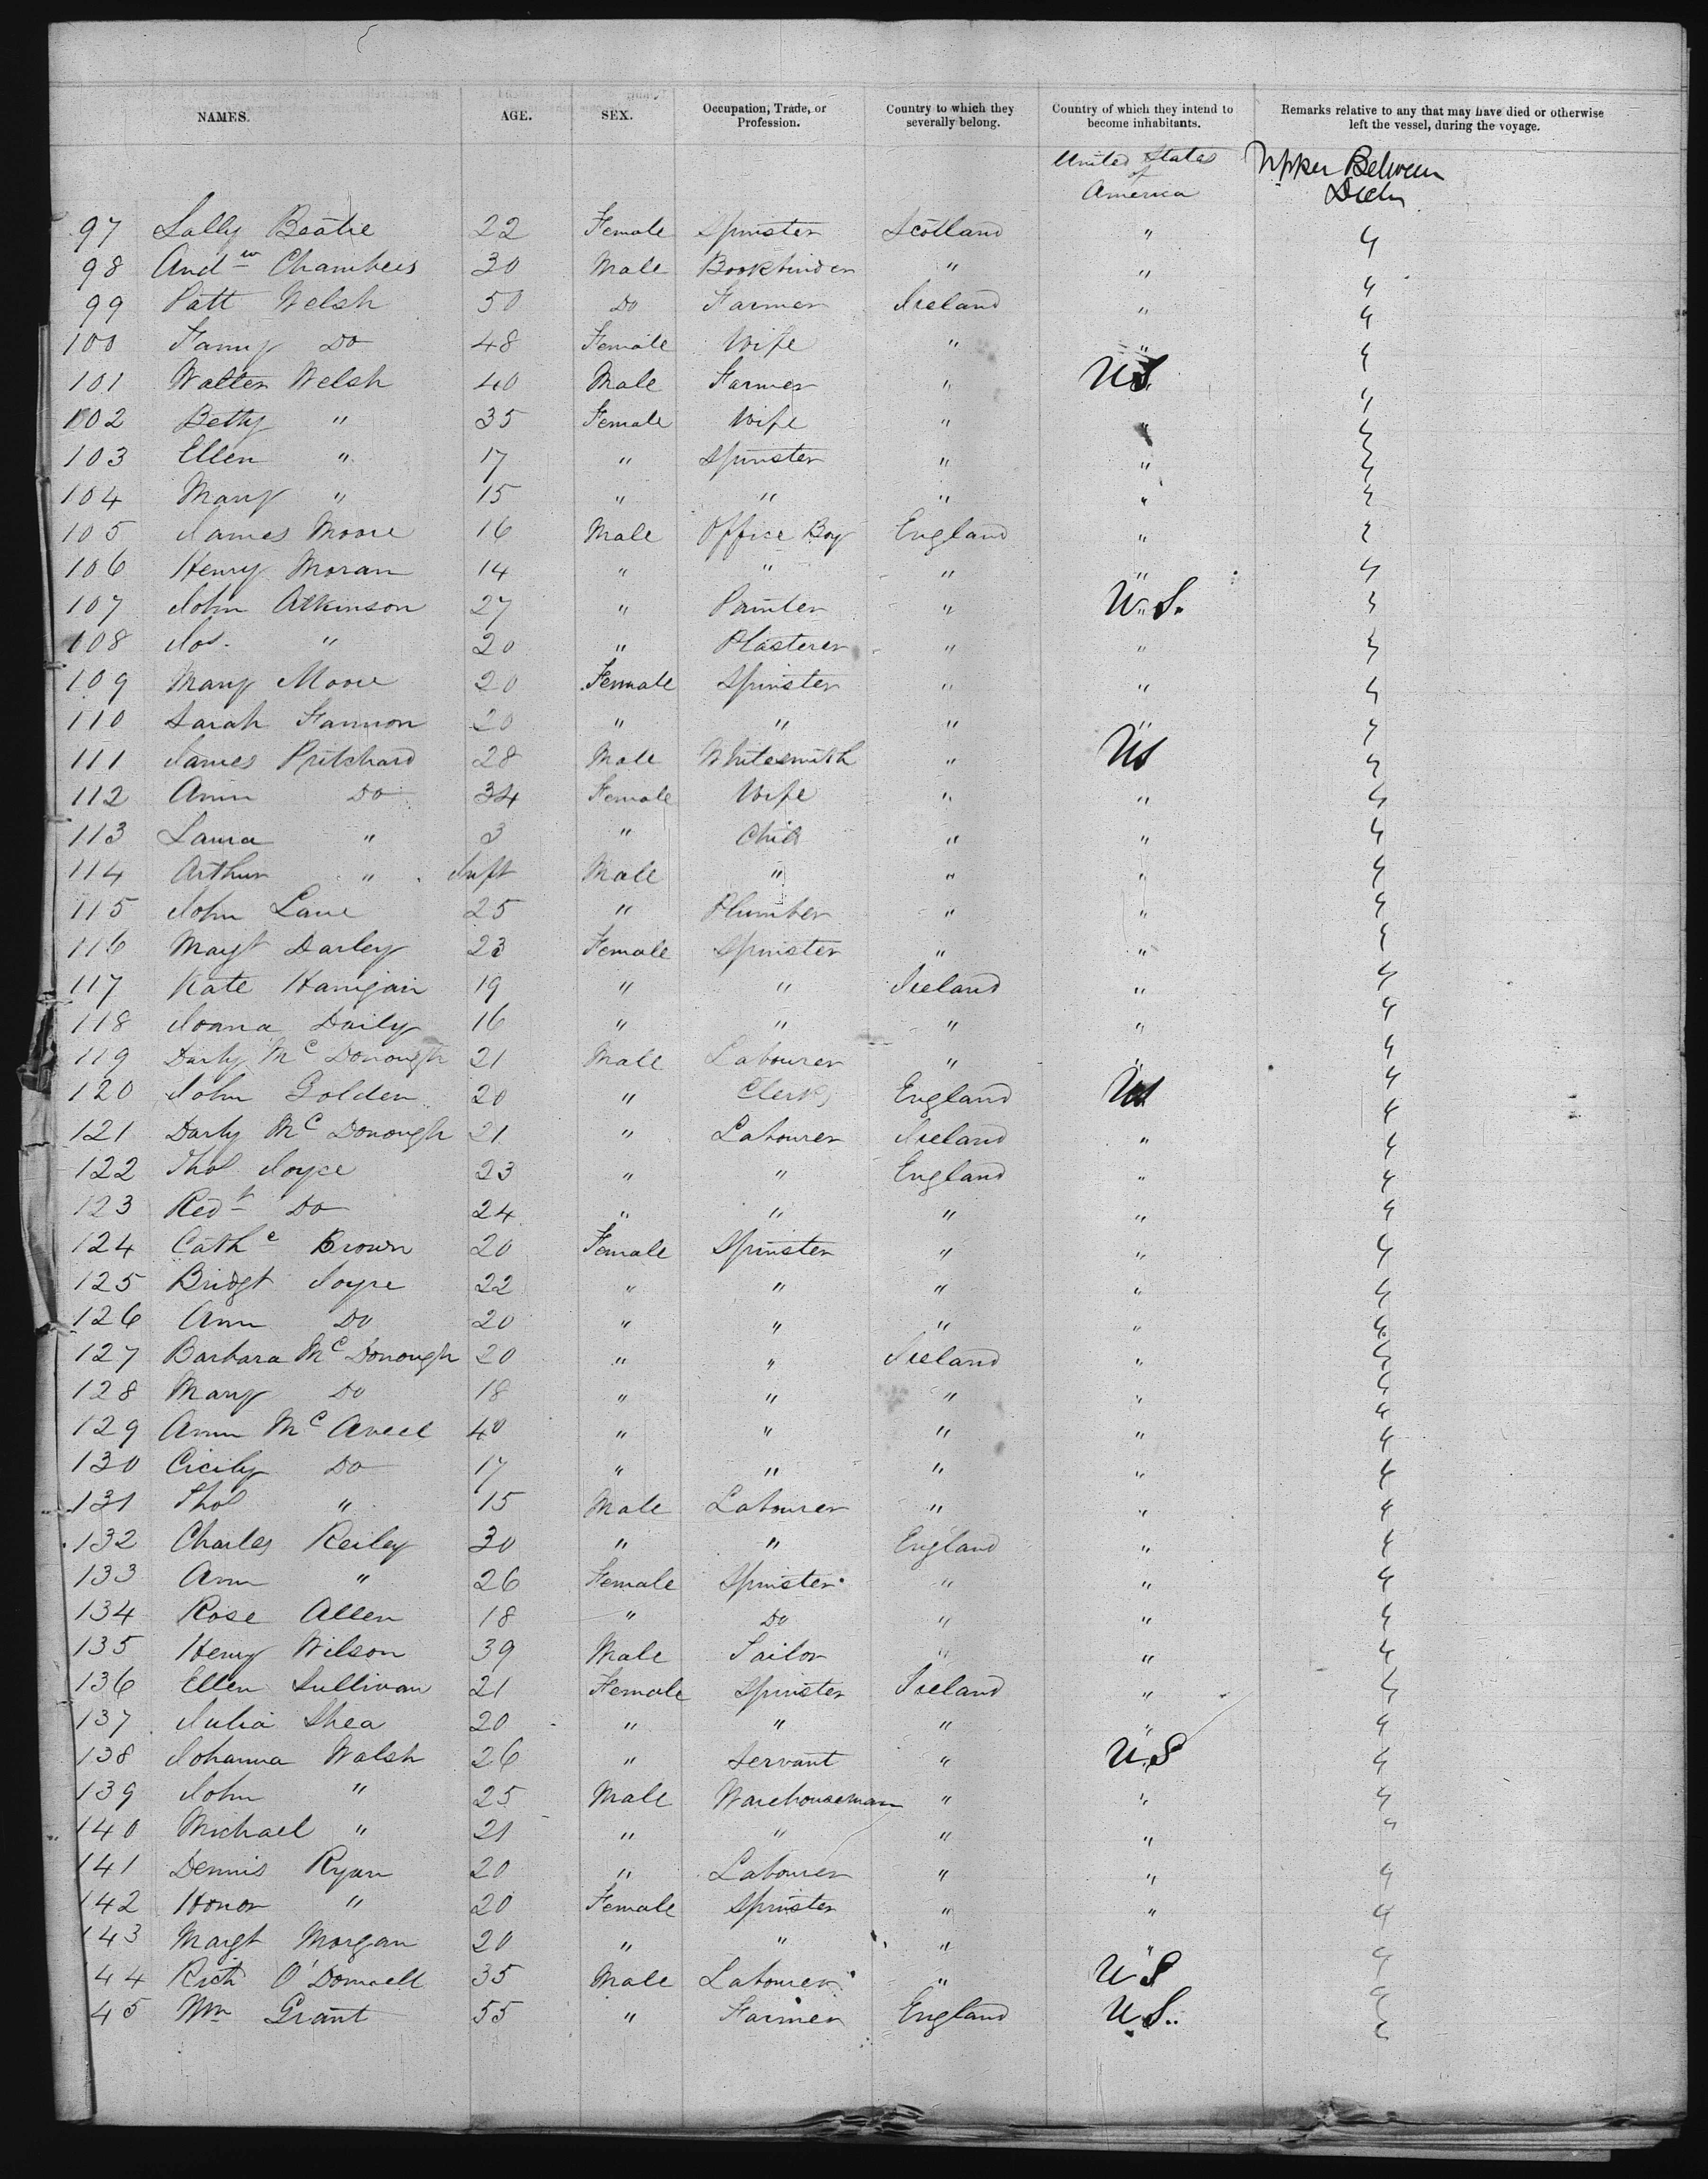 NAMES. AGE. SEX. Occupation, Trade, or Profession. Country to which they severally belong. Country of which they intend to become inhabitants. Remarks relative to any that may have died or otherwise left the vessel, during the voyage.
United States of America Upper Between Decks
97 Sally Beatie 22 Female Spinster Scotland " "
98 Andw Chambers 30 Male Bookbinder " " "
99 Patt Welsh 50 Do Farmer Ireland " "
100 Fanny Do 48 Female Wife " " "
101 Walter Welsh 40 Male Farmer " US "
102 Betty " 35 Female Wife " " "
103 Ellen " 17 " Spinster " " "
104 Mary " 15 " " " " "
105 James Moore 16 Male Office Boy England " "
106 Henry Moran 14 " " " " "
107 John Atkinson 27 " Painter " U.S. "
108 Jos. " 20 " Plasterer " " "
109 Mary Moore 20 Female Spinster " " "
110 Sarah Fannon 20 " " " " "
111 James Pritchard 28 Male Whitesmith " US "
112 Ann Do 34 Female Wife " " "
113 Laura " 3 " Child " " "
114 Arthur " Inft Male " " " "
115 John Lane 25 " Plumber " " "
116 Margt Darley 23 Female Spinster " " "
117 Kate Hanigan 19 " " Ireland " "
118 Joana Daily 16 " " " " "
119 Darby McDonough 21 Male Labourer " " "
120 John Golden 20 " Clerk England US "
121 Darby McDonough 21 " Labourer Ireland " "
122 Thos Joyce 23 " " England " "
123 Redd Do 24 " " " " "
124 Cathe Brown 20 Female Spinster " " "
125 Bridgt Joyce 22 " " " " "
126 Ann Do 20 " " " " "
127 Barbara McDonough 20 " " Ireland " "
128 Mary Do 18 " " " " "
129 Ann Mc 40 " " " " "
130 Cicily Do 17 " " " " "
131 Thos " 15 Male Labourer " " "
132 Charles Reiley 30 " " England " "
133 Ann " 26 Female Spinster " " "
134 Rose Allen 18 " Do " " "
135 Henry Wilson 39 Male Tailor " " "
136 Ellen Sullivan 21 Female Spinster Ireland " "
137 Julia Shea 20 " " " " "
138 Johanna Walsh 26 " Servant " U.S "
139 John " 25 Male Warehouseman " " "
140 Michael " 21 " " " " "
141 Dennis Ryan 20 " Labourer " " "
142 Honor " 20 Female Spinster " " "
143 Margt Morgan 20 " " " " "
44 Richd O'Donnell 35 Male Labourer " U S "
45 Wm Grant 55 " Farmer England U.S. "